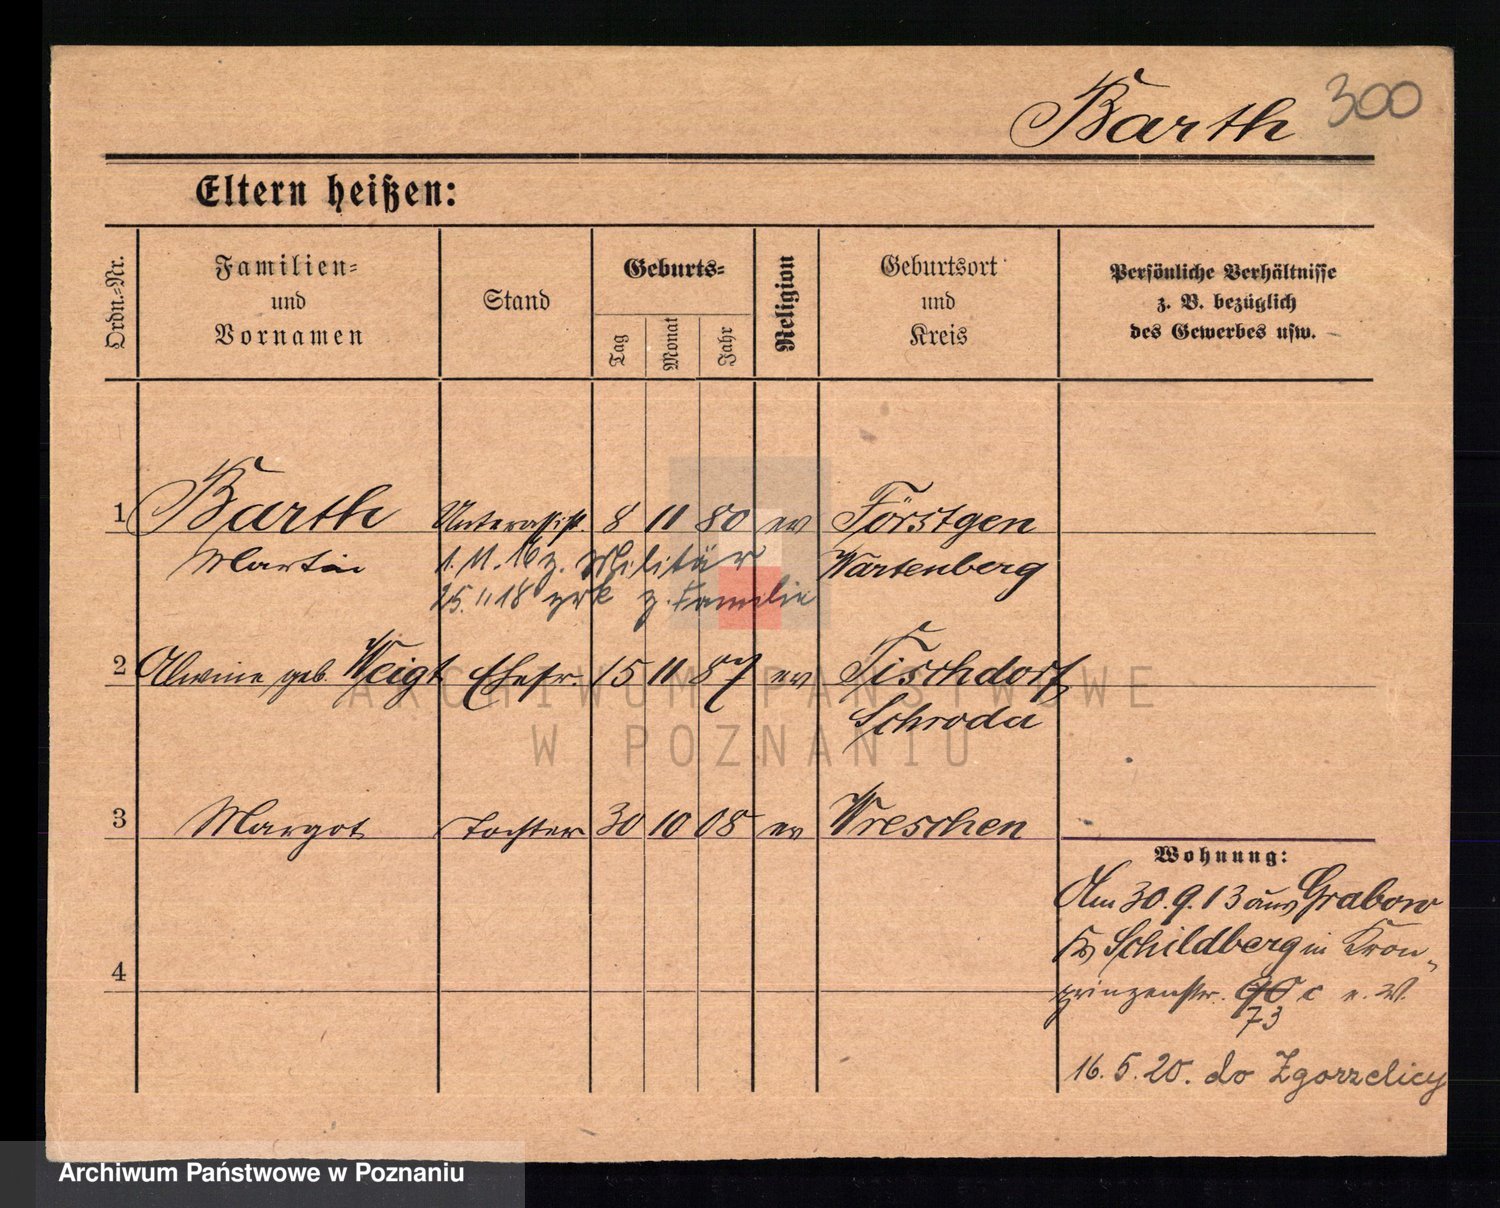 Barth 300
Eltern heißen:
Ordn.-Nr.
Familien-
und
Vornamen
Stand
Geburts-
Tag
Monat
Jahr
Religion
Geburtsort
und
Kreis
Persönliche Verhältnisse
z. B. bezüglich
des Gewerbes usw.
1 Barth Unterassist. 8 11 80 ev Förstgen
Martin 1.11.16 z. Militär Wartenberg
25.11 18 zrk z. Familie
2 Alwine geb. Weigt Ehefr. 15 11 87 ev Tischdorf
Schroda
3 Margot Tochter 30 10 08 ev Wreschen
Wohnung:
Am 30.9.13 aus Grabow
Kr. Schildberg in Kron-
4
prinzenstr. 90 c
73
16.5.20. do Zgorzelicy
ARCHIWUM PAŃSTWOWE
W POZNANIU
Archiwum Państwowe w Poznaniu